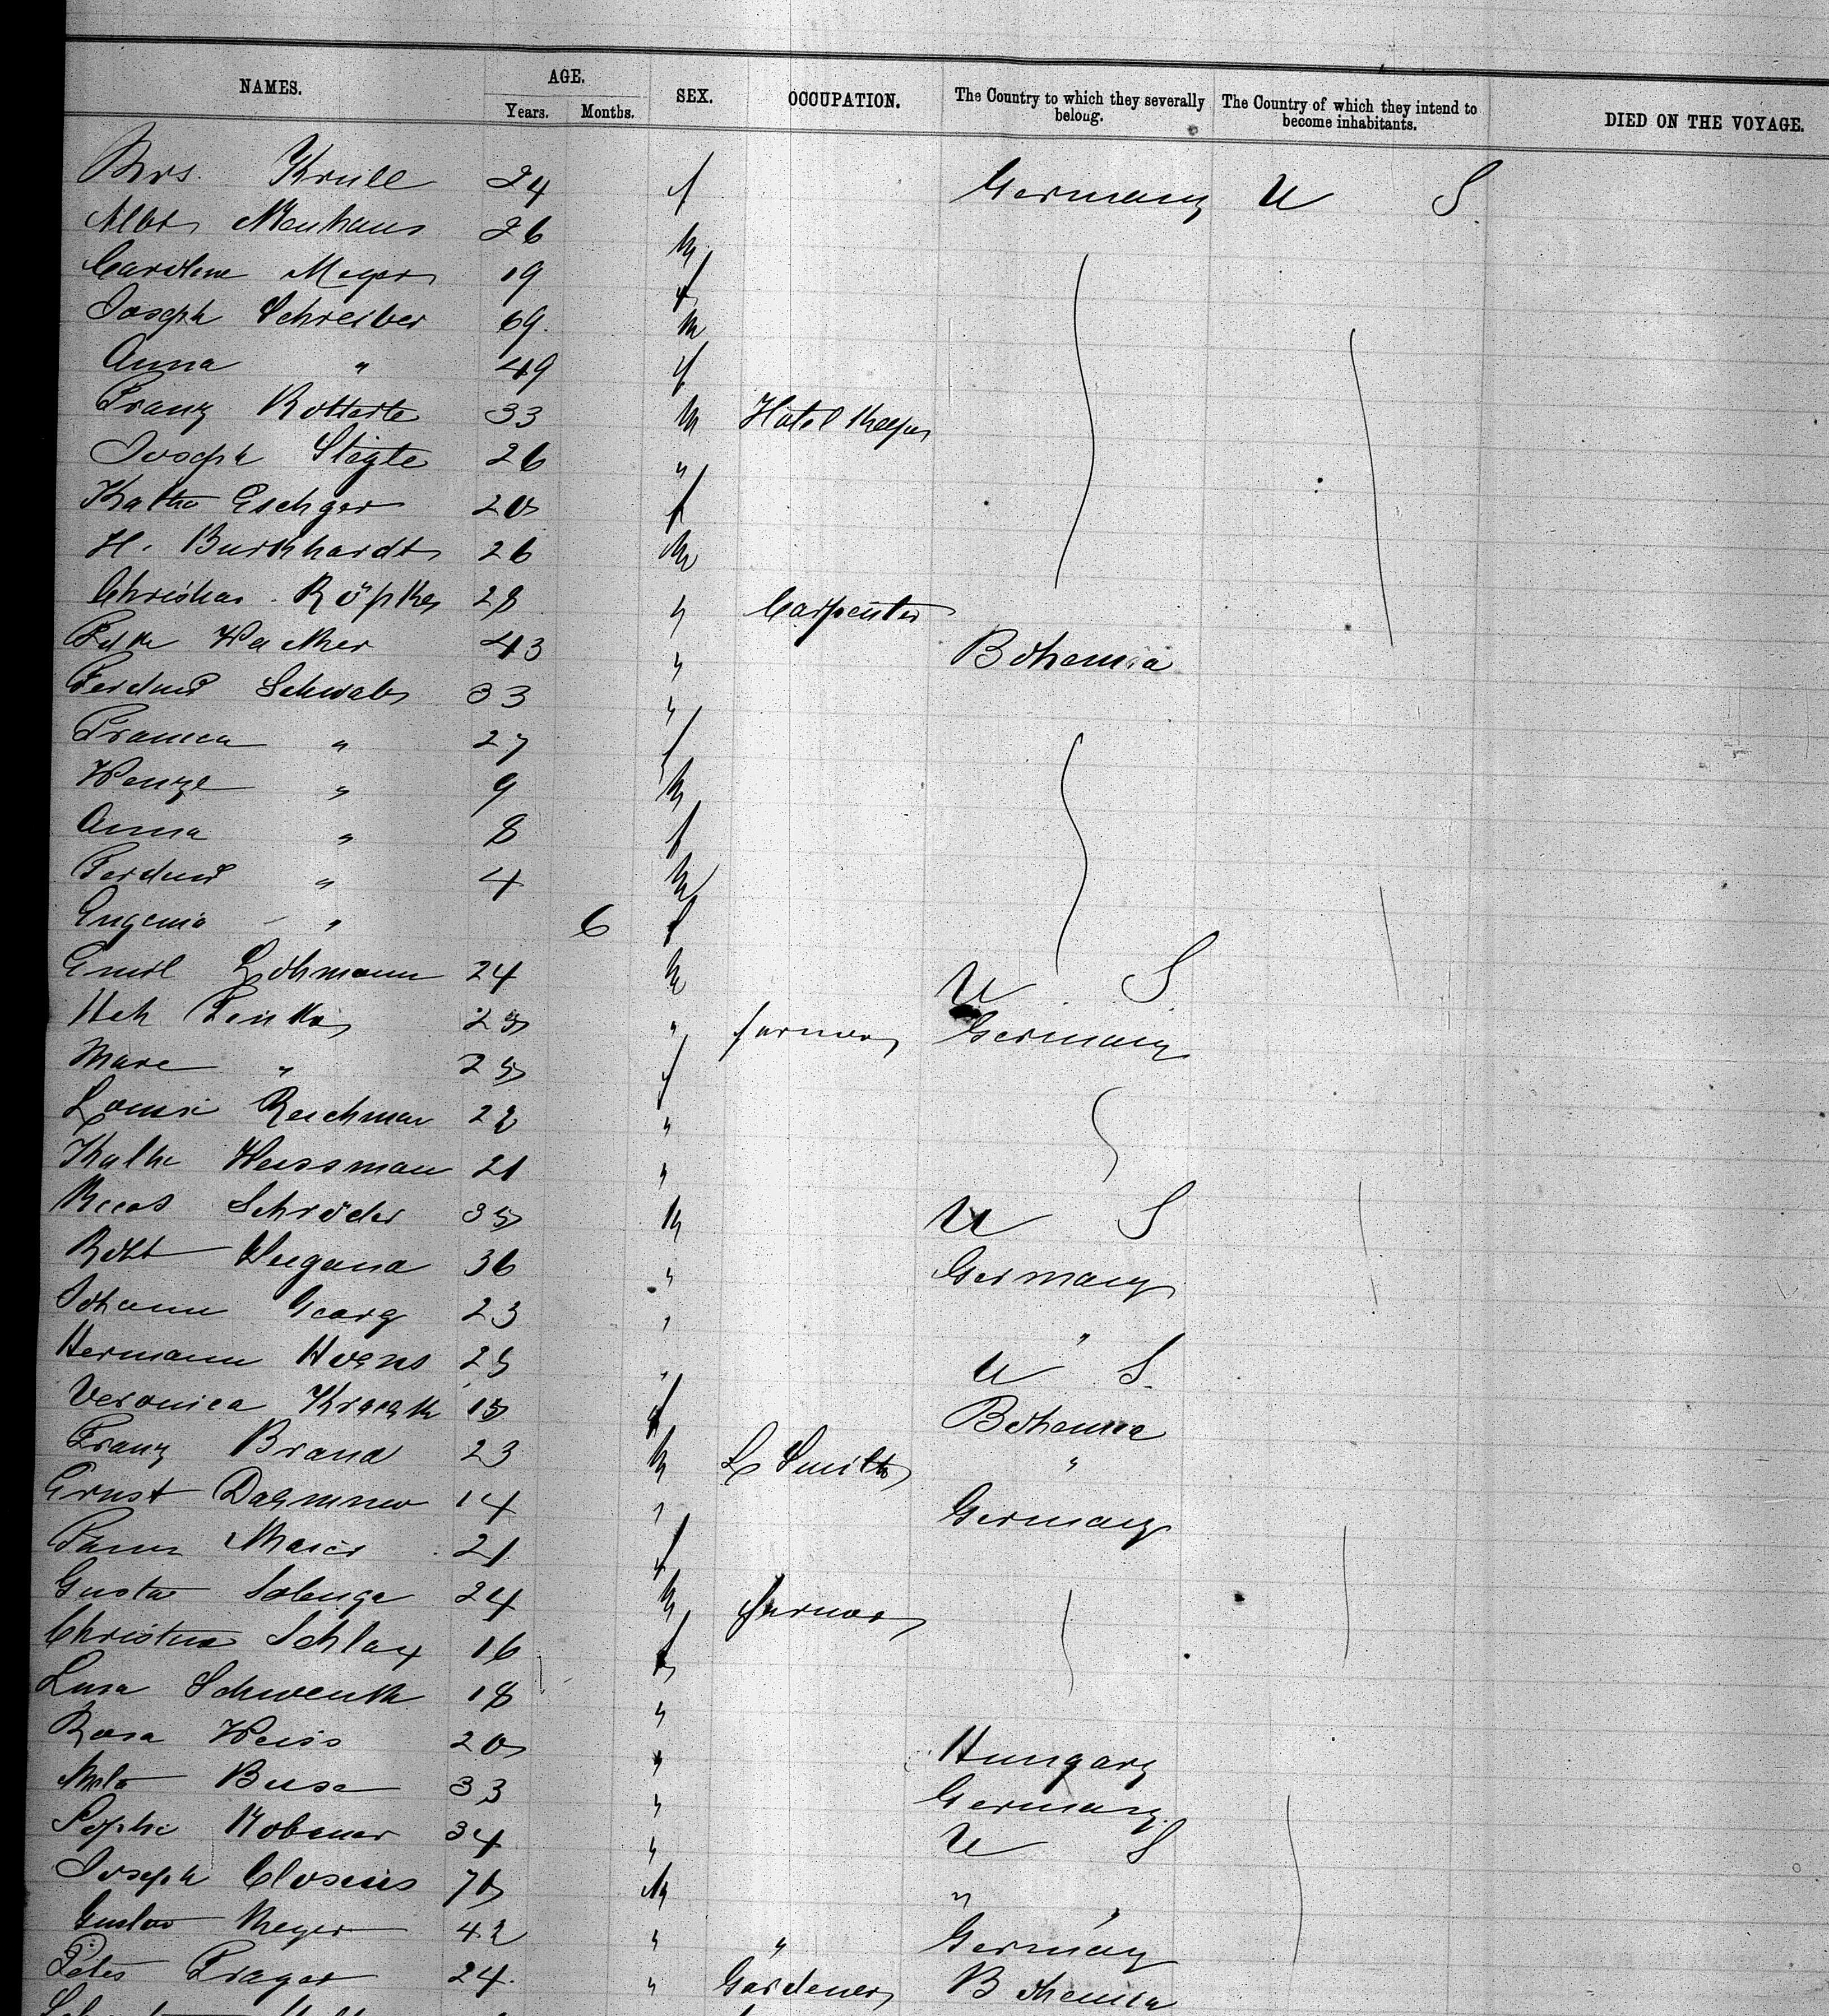 NAMES. AGE. SEX. OCCUPATION. The Country to which they severally belong. The Country of which they intend to become inhabitants. DIED ON THE VOYAGE.
Years. Months.
Mrs. Krull 24 f Germany U S.
Albt Neuhaus 26 m
Caroline Meyer 19 f
Joseph Schreiber 69. m
Anna " 49 f
Franz Rotterte 33 m Hotel Keeper
Joseph Stegte 26 "
Kathe Eschger 20 f
H. Burkhardt 26 m
Christian Röpke 28 " Carpenter
Wacker 43 " Bohemia
Ferdind Schwab 33 "
Franica " 27 f
Wenzl " 9 m
Anna " 8 f
Ferdind " 4 m
Eugenia " 6 f
Emil Lohmann 24 m U S
Hch 25 " farmer Germany
Marie " 25 f
Louise Reichman 22 "
Kathe Weissman 21 "
Schröder 35 m U S
Robt Wiegand 36 " Germany
Johann Georg 23 " "
Hermann Hoens 25 " U S.
Veronica 15 f Bohemia
Franz Brand 23 m L Smith "
Ernst 14 " Germany
21 f
Gustav 24 m farmer
Christina Schlax 16 f
Luisa Schwenk 18 "
Rosa Weiss 20 " Hungary
Buse 33 " Germany
Sophie 34 " U S
Joseph Closius 70 m "
Gustav Meyer 42 " " Germany
Peter Prager 24. " Gardener Bohemia